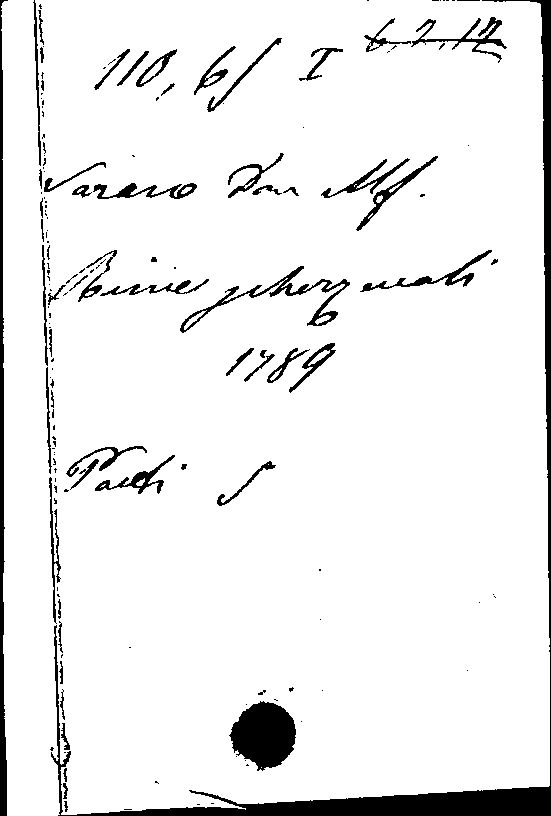 110, 6/ I 6, 2, 12
Varano Don Alf.
Rime scherzevoli
1789
Poeti S